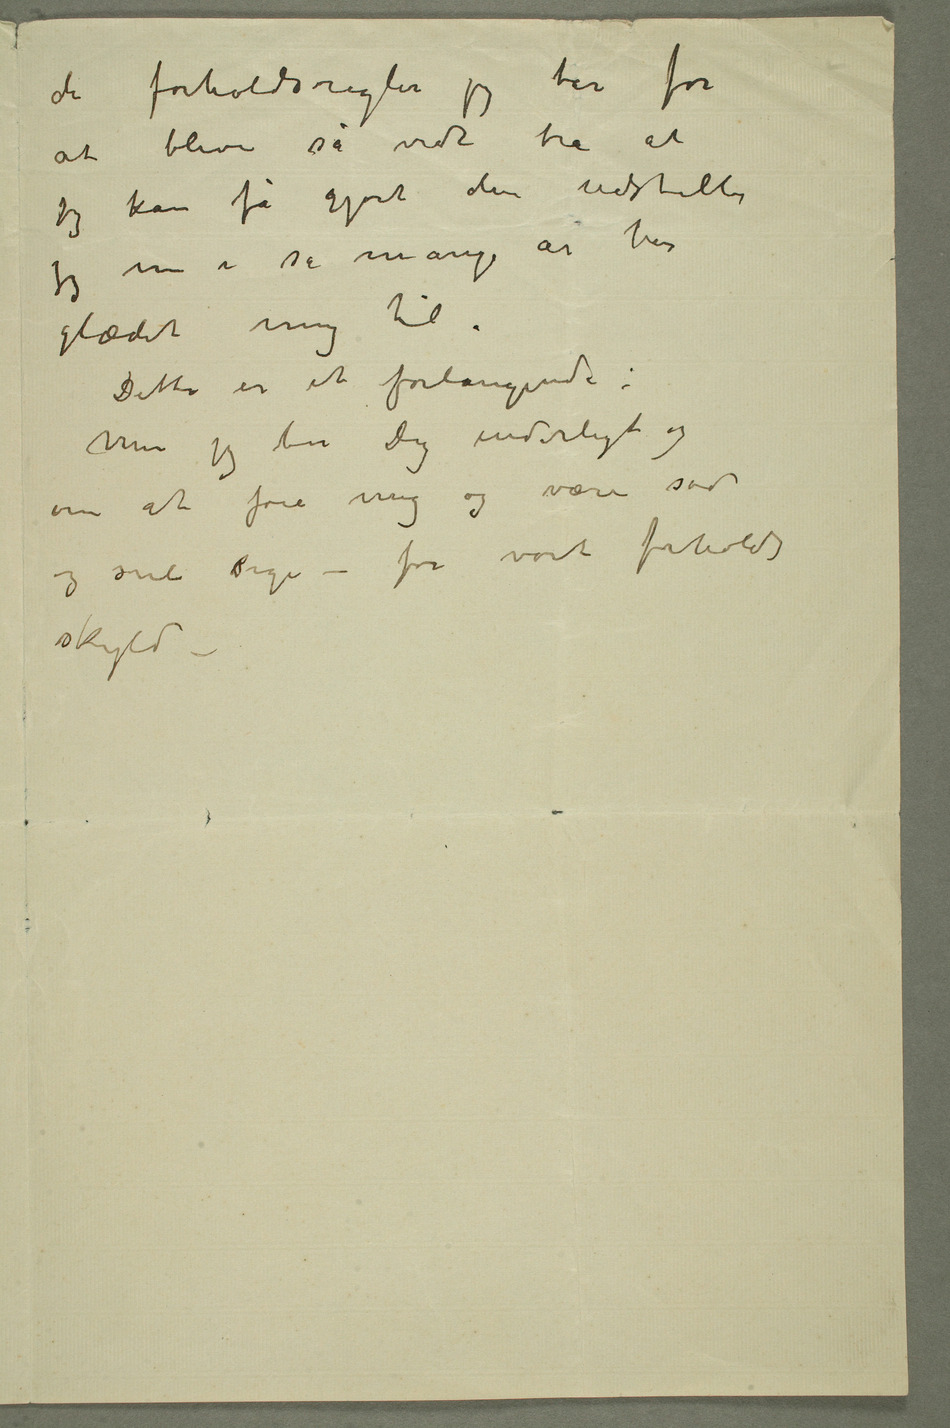 de forholdsregler jeg tar for
at blive så vidt bra at
jeg kan få gjort den udstilling
jeg nu i så mange år har
glædet mig til.
Dette er et forlangende:
Men jeg ber Dig inderligt og
om at føie mig og være sød
og snil Dige – for vort forholds
skyld –